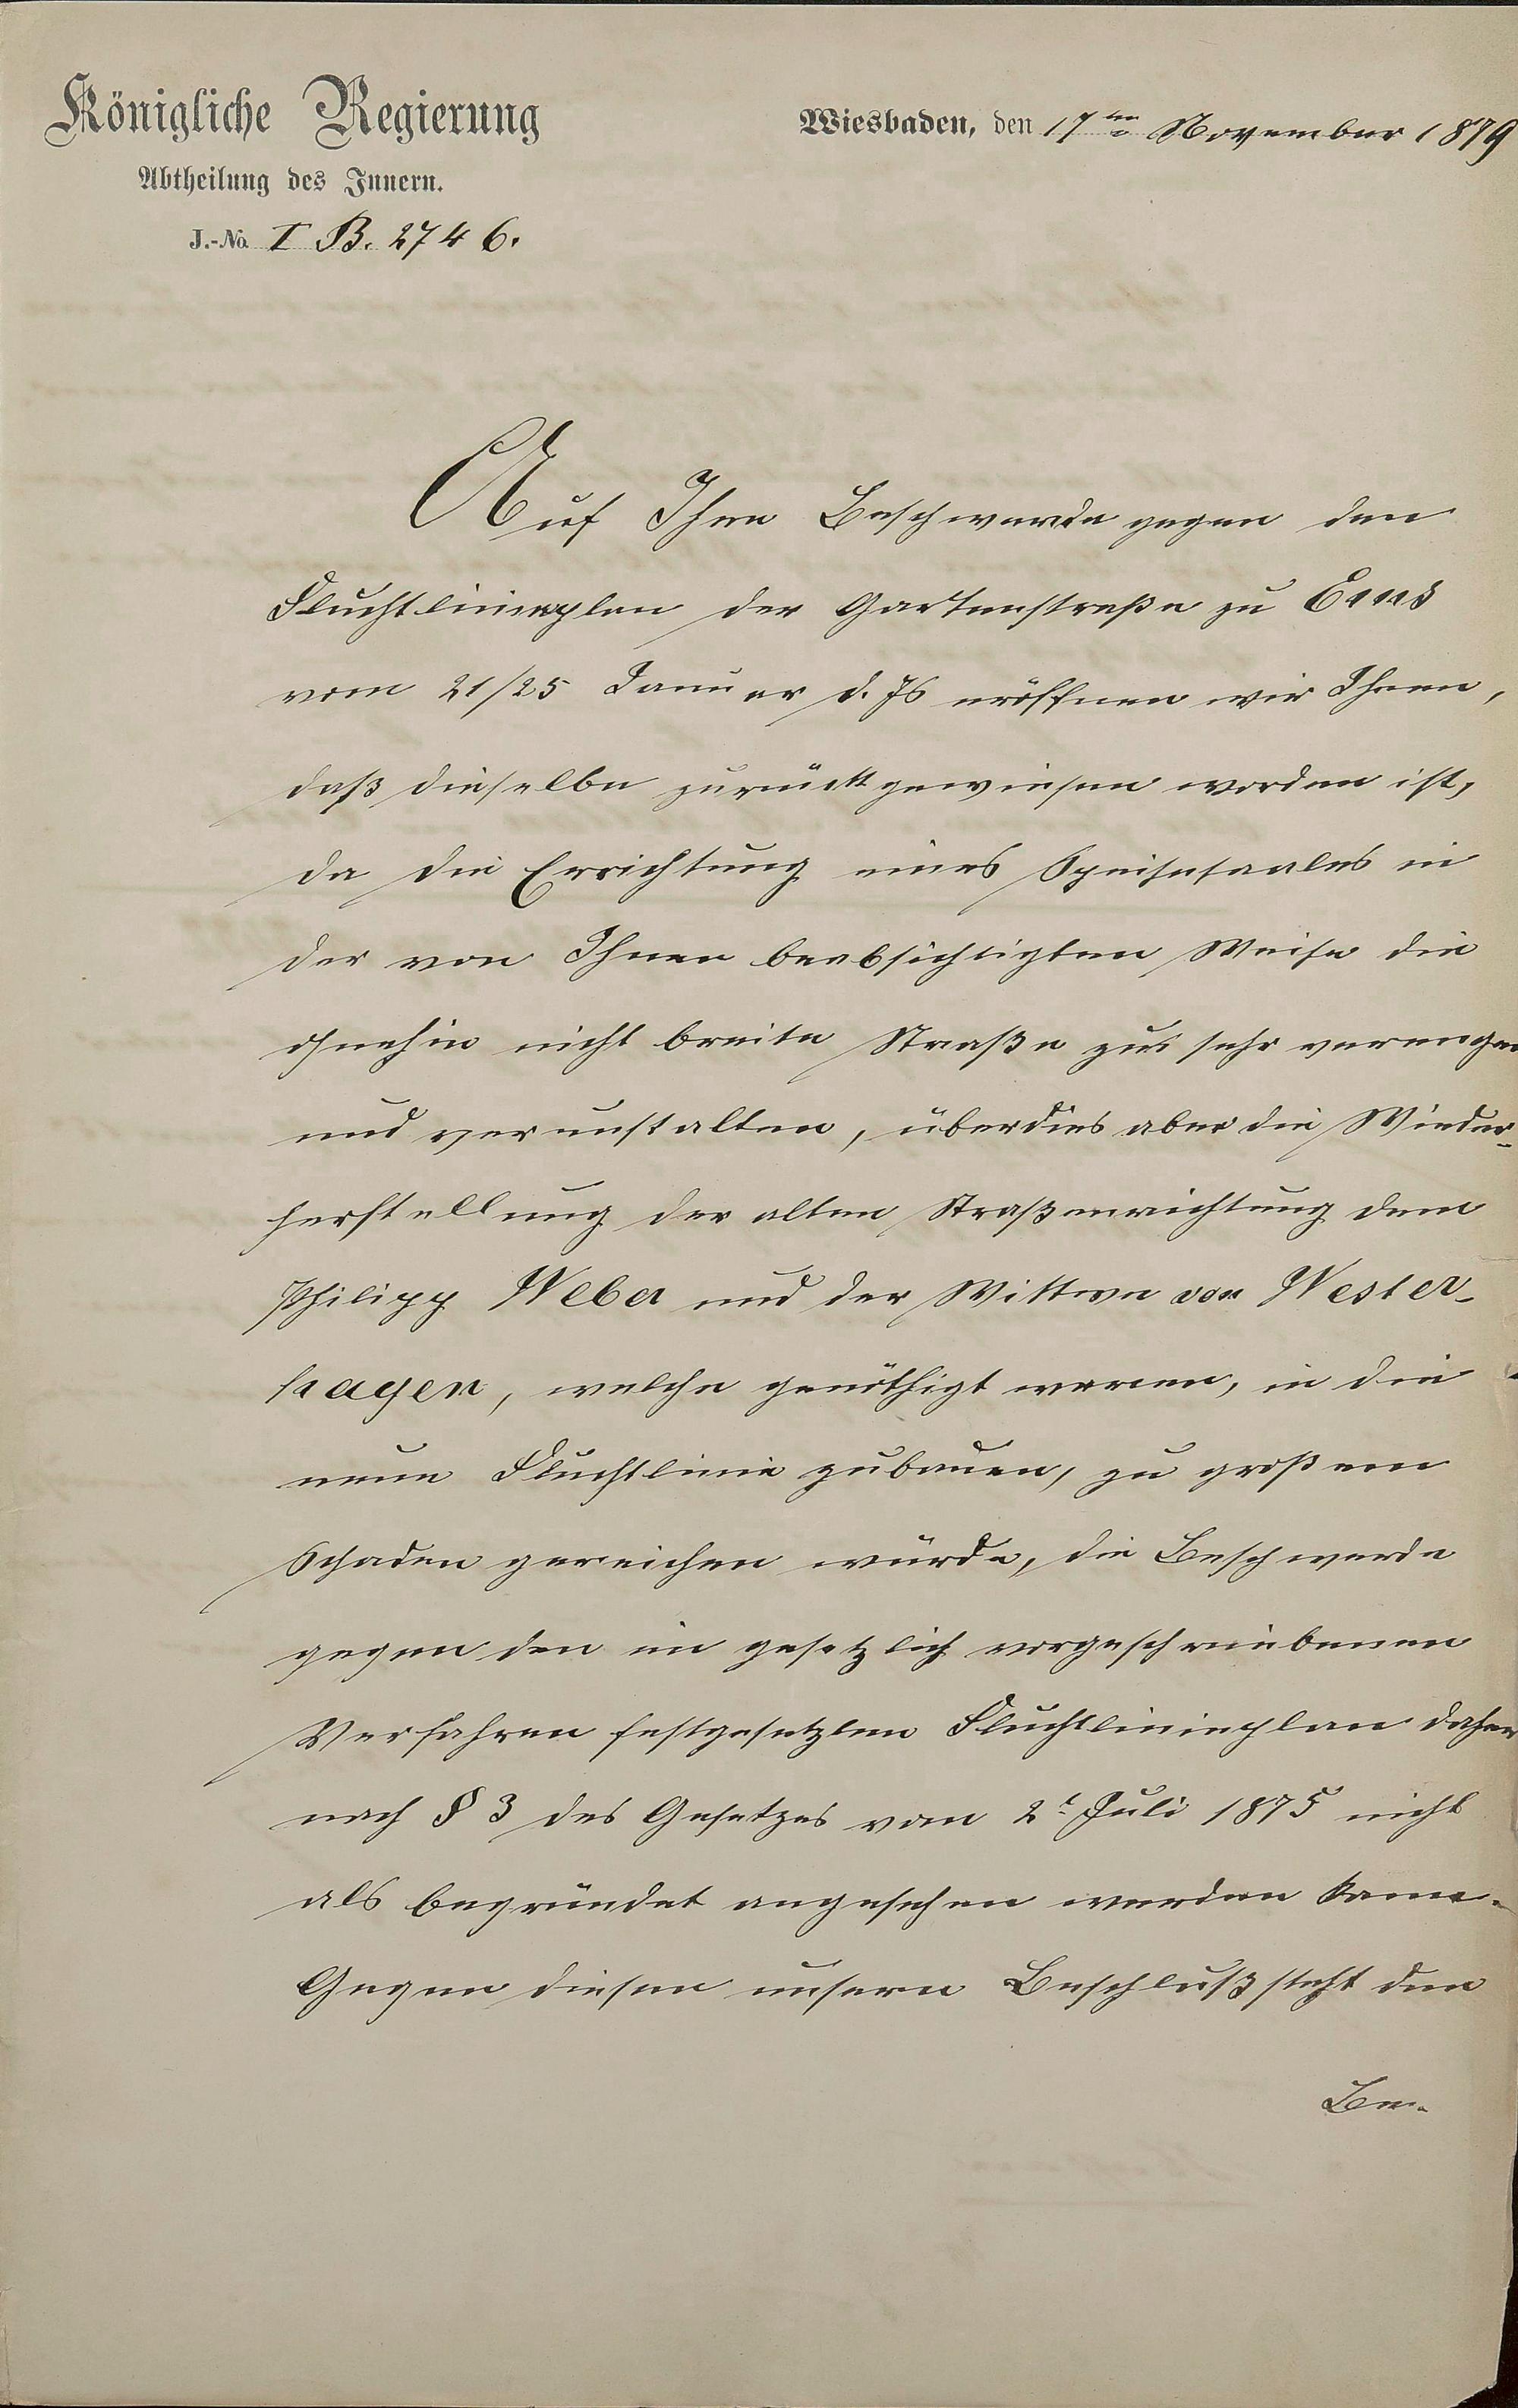 Königliche Regierung
Abtheilung des Innern.
J.-No. I B. 2746.
Wiesbaden, den 17ten November 1879
Auf Ihre Beschwerde gegen den
Fluchtlinienplan der Gartenstraße zu Ems
vom 21/25 Januar d. Js eröffnen wir Ihnen,
daß dieselbe zurückgewiesen worden ist,
da die Errichtung eines Speisesaales in
der von Ihnen beabsichtigten Weise die
ohnehin nicht breite Straße zu sehr verengen
und verunstalten, überdies aber die Wieder-
herstellung der alten Straßenrichtung dem
Philipp Weber und der Wittwe von Wester-
hagen, welche genöthigt waren, in die
neue Fluchtlinie zubauen, zu großem
Schaden gereichen würde, die Beschwerde
gegen den im gesetzlich vorgeschriebenen
Verfahren festgesetzten Fluchtlinieplan daher
nach § 3 des Gesetzes vom 2t Juli 1875 nicht
als begründet angesehen werden kann.
Gegen diesen unseren Beschluß steht den
Be-